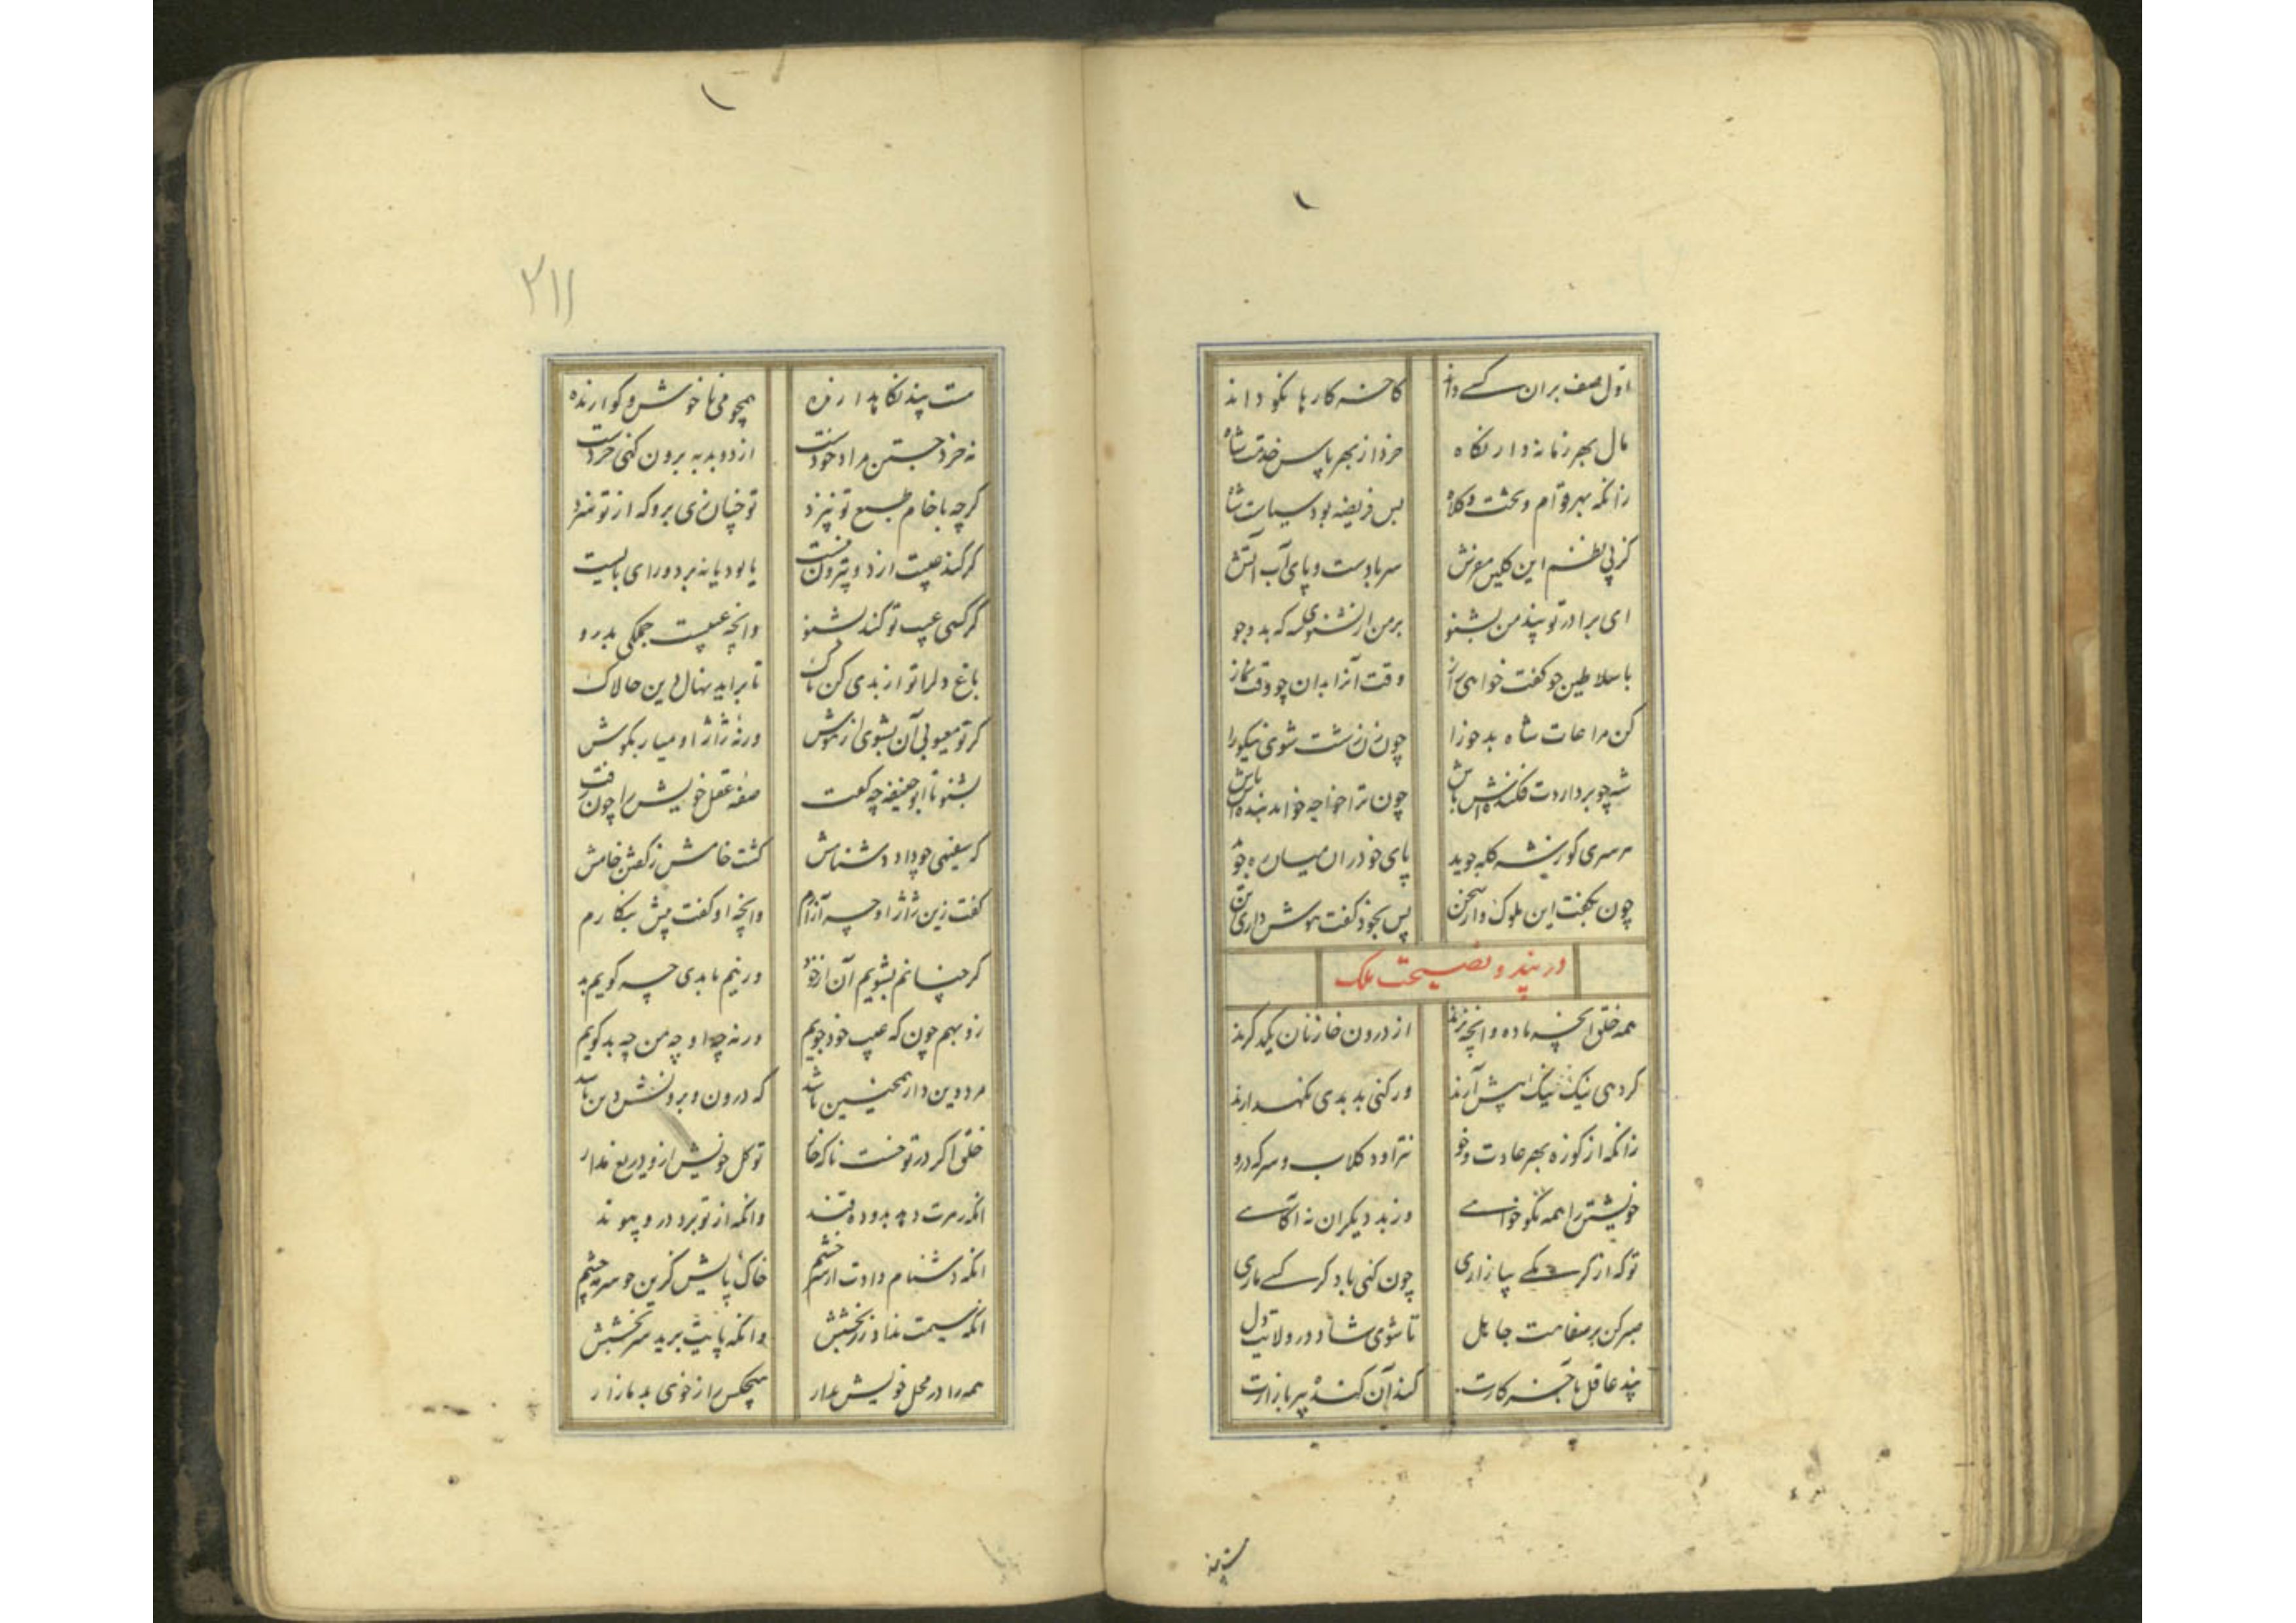 اول صف بران کسی داند کاخر کارها نکو داند
مال بهر زمانه دار نکاه خرد از بهر پاس خدمت شاه
زانکه بهر قوام و تخت و کلاه بس فریضه بود سیاست شاه
کز پی نظم این کلیم مفرش سر باد ست و پای آب آتش
ای برادر تو پند من بشنو بر من ار نشنوی که بد
با سلاطین چو کفت خواهی راز وقت آنرا بدان چو وقت نماز
کن مراعات شاه بدخو را چون زن زشت شوی نیکو را
شه چو برداردت فکنده‌ش باش چون ترا خواجه خواند بنده‌ش باش
هر سری کو ز شه کله جوید پای خود در میان ره جوید
چون بکفت این ملوک وار سخن پس بخود کفت هوش داری تن
در پند و نصیحت ملک
همه خلق آنچه ماده وانچه نرند از درون خازنان یکدکرند
کر دهی نیک نیک پیش آرند ور کنی بد بدی نکهدارند
زانکه از کوزه بهر عادت و خو نتراود کلاب و سرکه درو
خویشتن را همه نکو خواهی وز بد دیکران نه آکاهی
تو که از کرسکی بیازاری چون کنی یاد کرسکی ماری
صبر کن بر سفاهت جاهل تا شوی شاد در ولایت دل
پند عاقل باخر کارت کند آن کند پیر بازارت
ست پند
ست پند نکاهدارنده همچو می ناخوش و کوارنده
نه خرد جستن مراد خودست از دو بد به برون کنی خردست
کرچه با خام طبع تو نپزد تو چنان زی برو که از تو سزد
کر کند عیبت ارذ و بیرون نیست یا بود یا نبرد ورای بایست
کر کسی عیب تو کند بشنو وانچه عیبست جملکی بدرو
باغ دل را تو از بدی کن پاک تا براید نهال دین چالاک
کر تو معیوبی آن بشوی از هوش ورنه ژاژ او میار بکوش
بشنو تا ابو حنیفه چه کفت صفه عقل خویش را چون رفت
که سفیهی چو داد دشنامش کشت خامش ز کفتن خامش
کفت زین ژاژ او چه آزارم وانچه او کفت پیش بنکارم
کر چنانم بشویم آن از خود ور نیم با بدی چه کویم بد
زو بهم چون که عیب خود جویم ورنه چه او چه من چه بد کویم
مرد دین دار همچنین باشد که درون و برونش دین باشد
خلق اکر در تو خست ناکه خار تو کل خویش ازو دریغ مدار
انکه زهرت دهد بدو ده قند وانکه از تو برد درو پیوند
انکه دشنام دادت از سر خشم خاک پایش کزین چو سرمه چشم
انکه سیمت نداد زر بخشش وانکه پایت برید سر بخشش
همه را در محل خویش بدار هیچکس را ز خوی بد مازار
۲۱۱